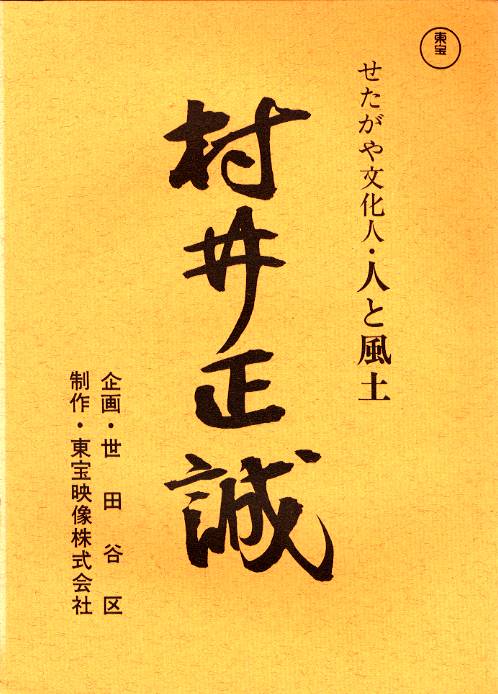 東宝
せたがや文化人・人と風土
村井正誠
企画・世田谷区
制作・東宝映像株式会社